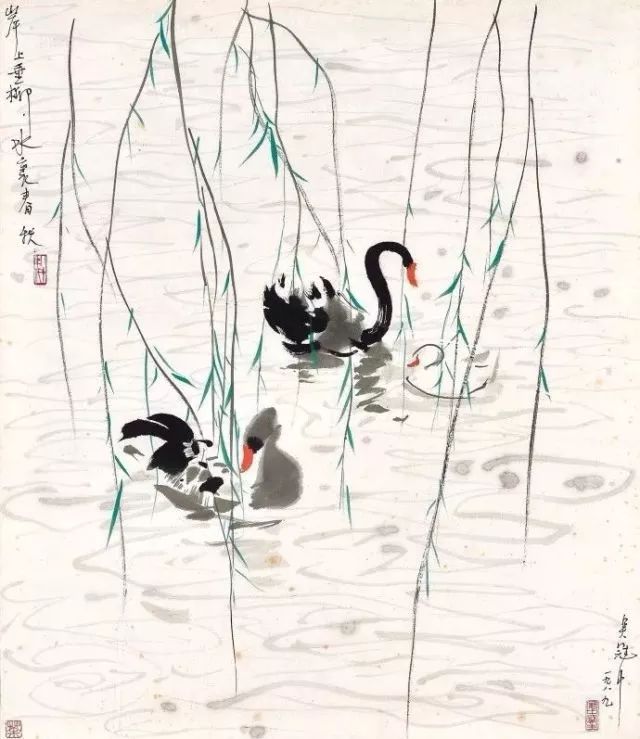 岸上垂柳，水裏春秋
吴冠中
一九八九